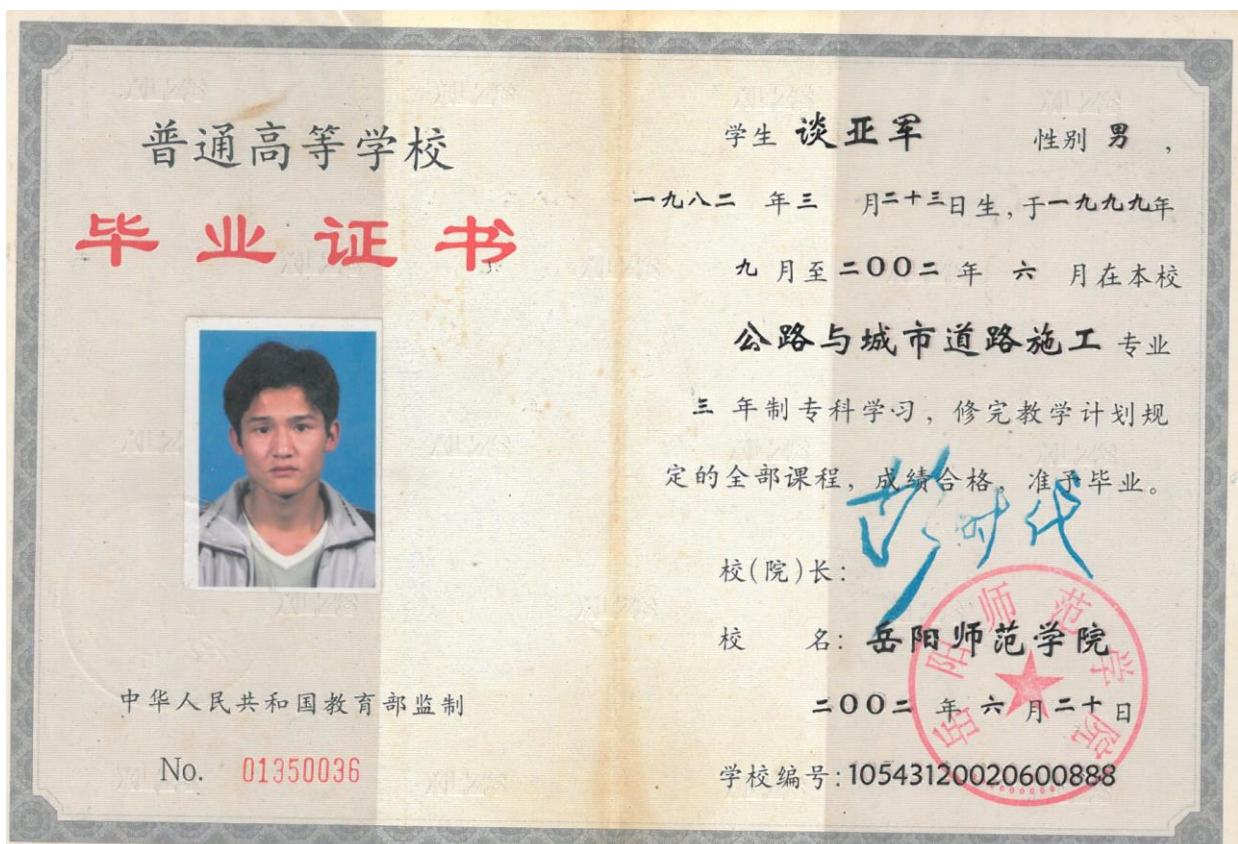 普通高等学校
毕业证书
中华人民共和国教育部监制
No. 01350036
学生 谈亚军 性别 男 ，
一九八二 年三 月二十三日生，于一九九九年
九 月至二00二 年 六 月在本校
公路与城市道路施工 专业
三 年制专科学习，修完教学计划规
定的全部课程，成绩合格，准予毕业。
彭时代
校(院)长：
校 名：岳阳师范学院
二00二 年 六 月二十日
学校编号：10543120020600888
岳阳师范学院